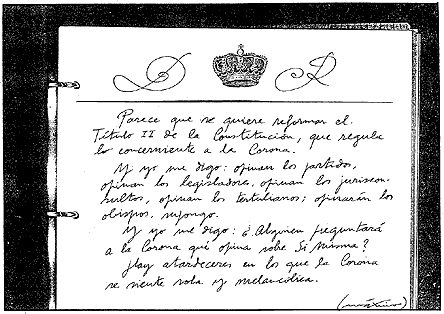 D R
Parece que se quiere reformar el
Título II de la Constitución, que regula
lo concerniente a la Corona.
Y yo me digo: opinan los partidos,
opinan los legisladores, opinan los juriscon-
sultos, opinan los tertulianos; opinarán los
obispos, supongo.
Y yo me digo: ¿Alguien preguntará
a la Corona qué opina sobre Sí Misma?
Hay atardeceres en los que la Corona
se siente sola y melancólica.
(máximo)